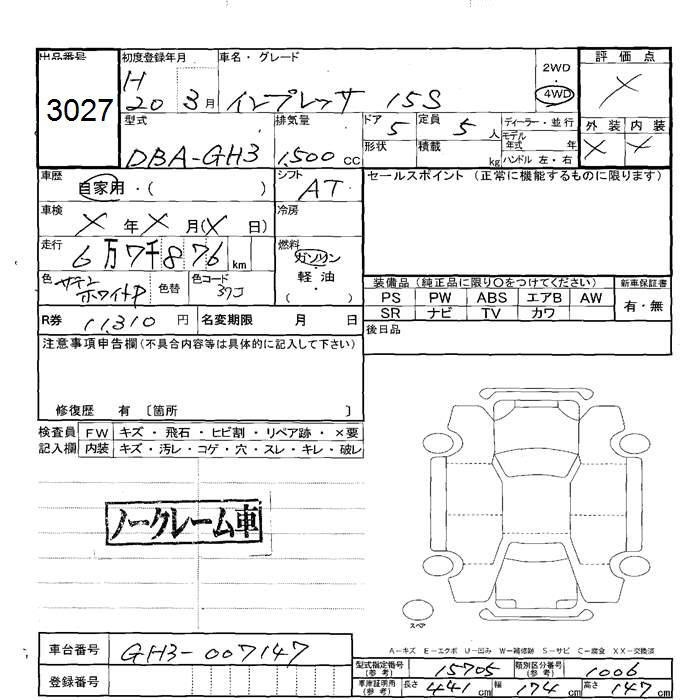 出品番号 初度登録年月 車名・グレード 評価点
3027 H 20 3月 インプレッサ 15S 2WD・4WD ×
型式 排気量 ドア 5 定員 5人 ディーラー・並行 外装 内装
DBA-GH3 1,500cc 形状 積載 kg モデル年式 年 ハンドル 左・右 × ×
車歴 自家用・( ) シフト AT セールスポイント(正常に機能するものに限ります)
車検 × 年 × 月(× 日) 冷房
走行 6万7千876km 燃料 ガソリン
色 サテンホワイトP 色替 色コード 37J 軽・油
( )
装備品(純正品に限り○をつけてください) 新車保証書
PS PW ABS エアB AW 有・無
SR ナビ TV カワ
R券 11,310円 名変期限 月 日 後日品
注意事項申告欄(不具合内容等は具体的に記入して下さい)
修復歴 有 〔箇所 〕
検査員 FW キズ・飛石・ヒビ割・リペア跡・×要
記入欄 内装 キズ・汚レ・コゲ・穴・スレ・キレ・破レ
ノークレーム車
スペア
A-キズ E-エクボ U-凹み W-補修跡 S-サビ C-腐食 XX-交換済
車台番号 GH3-007147
型式指定番号(参考) 15705 類別区分番号(参考) 1006
登録番号
車庫証明用(参考) 長さ 441cm 幅 174cm 高さ 147cm